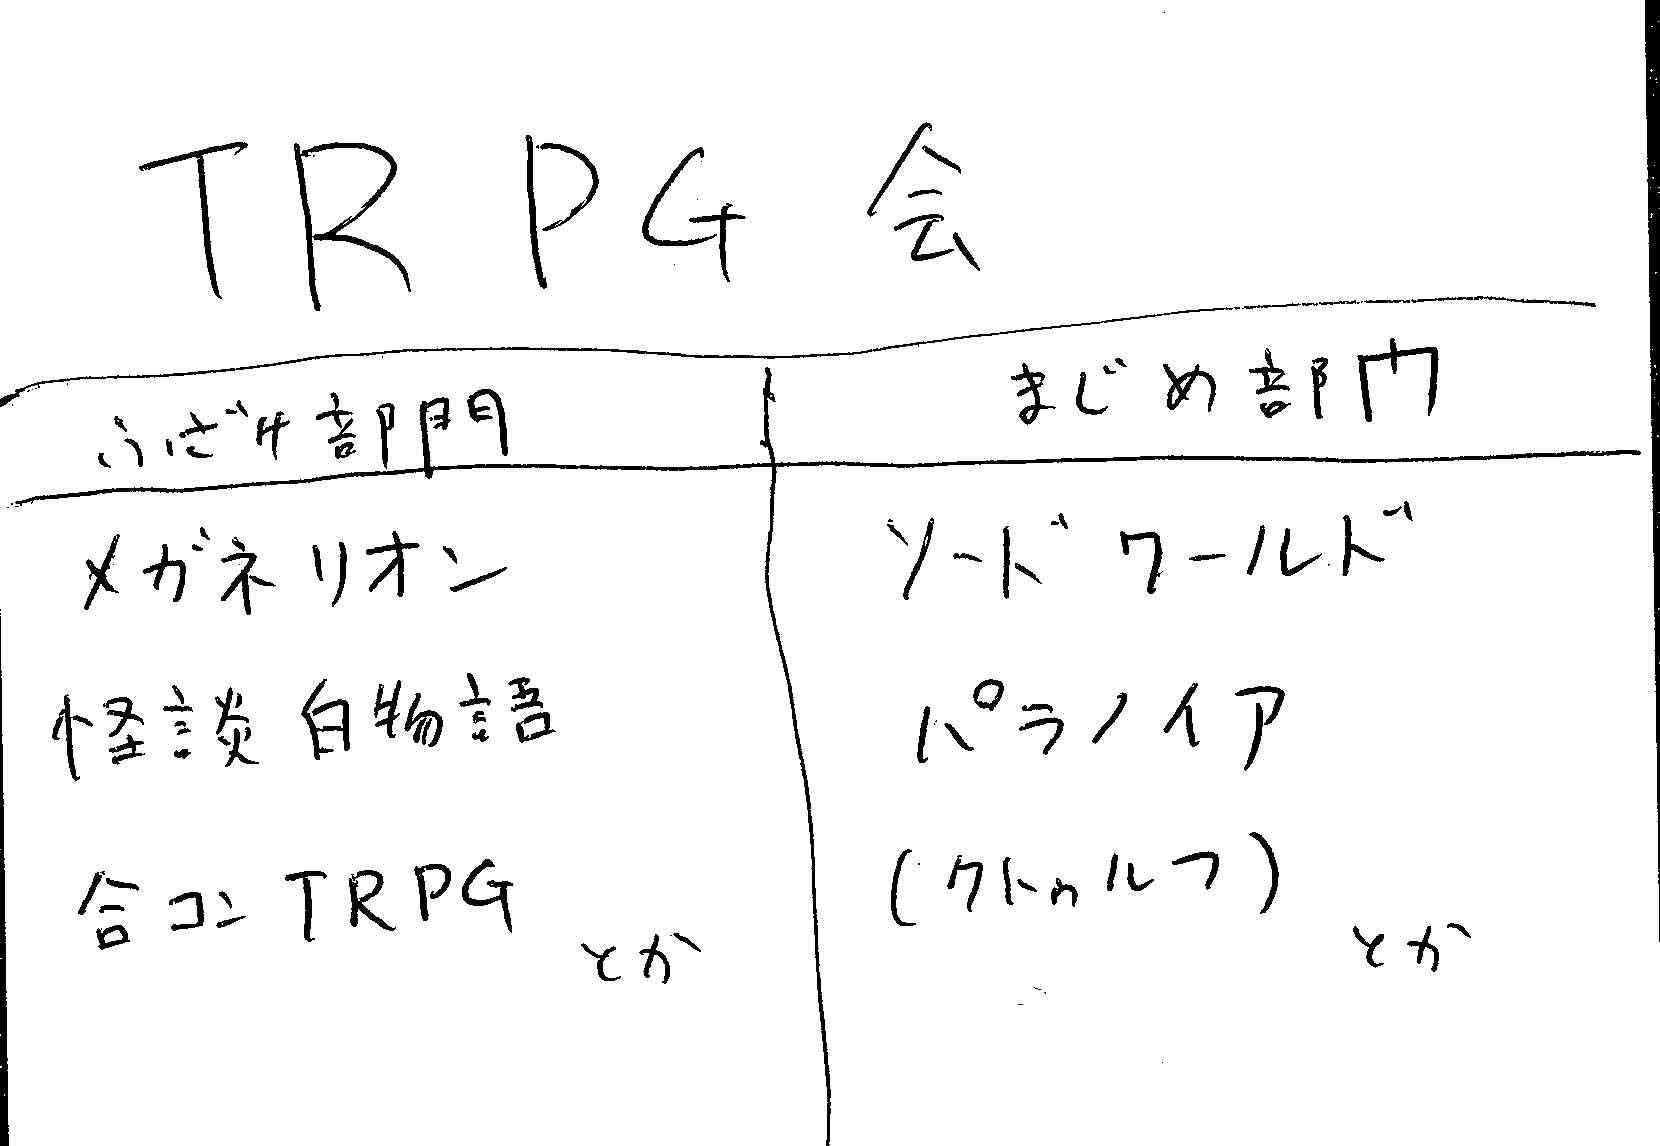 TRPG会
ふざけ部門
まじめ部門
メガネリオン
ソードワールド
怪談白物語
パラノイア
合コンTRPG
とか
(クトゥルフ)
とか